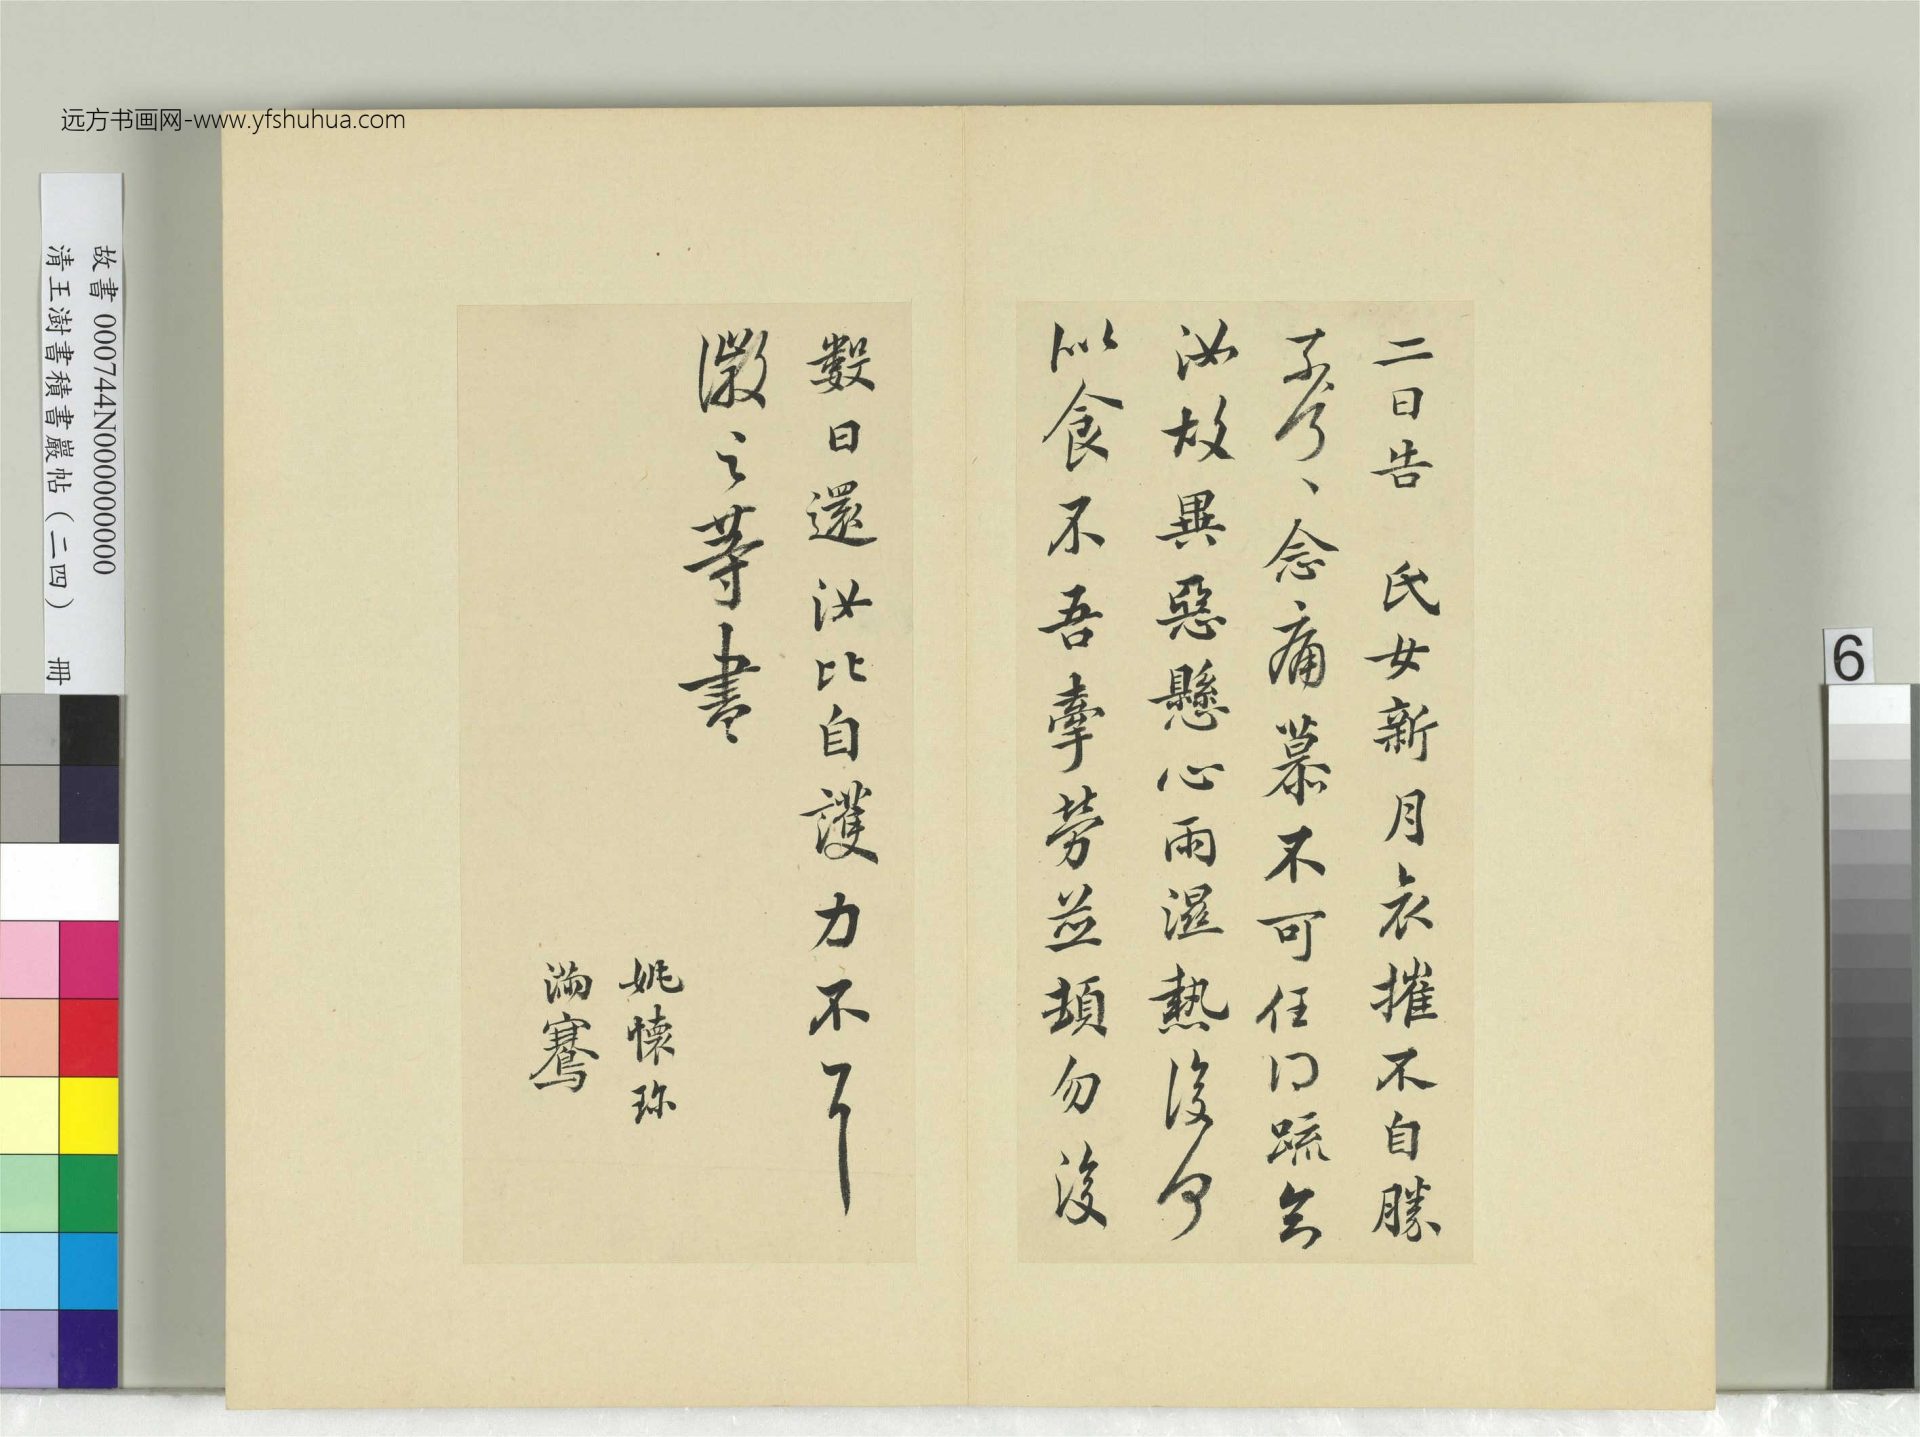 远方书画网-www.yfshuhua.com
故書 000744N000000000
清王澍書積書巖帖（二四） 冊
6
二日告 氏女新月哀摧不自勝
奈何、念痛慕不可任得疏知
汝故異惡懸心雨濕熱復何
似食不吾牽勞並頓勿復
數日還汝比自護力不
徽之等書
姚懷珍
滿騫